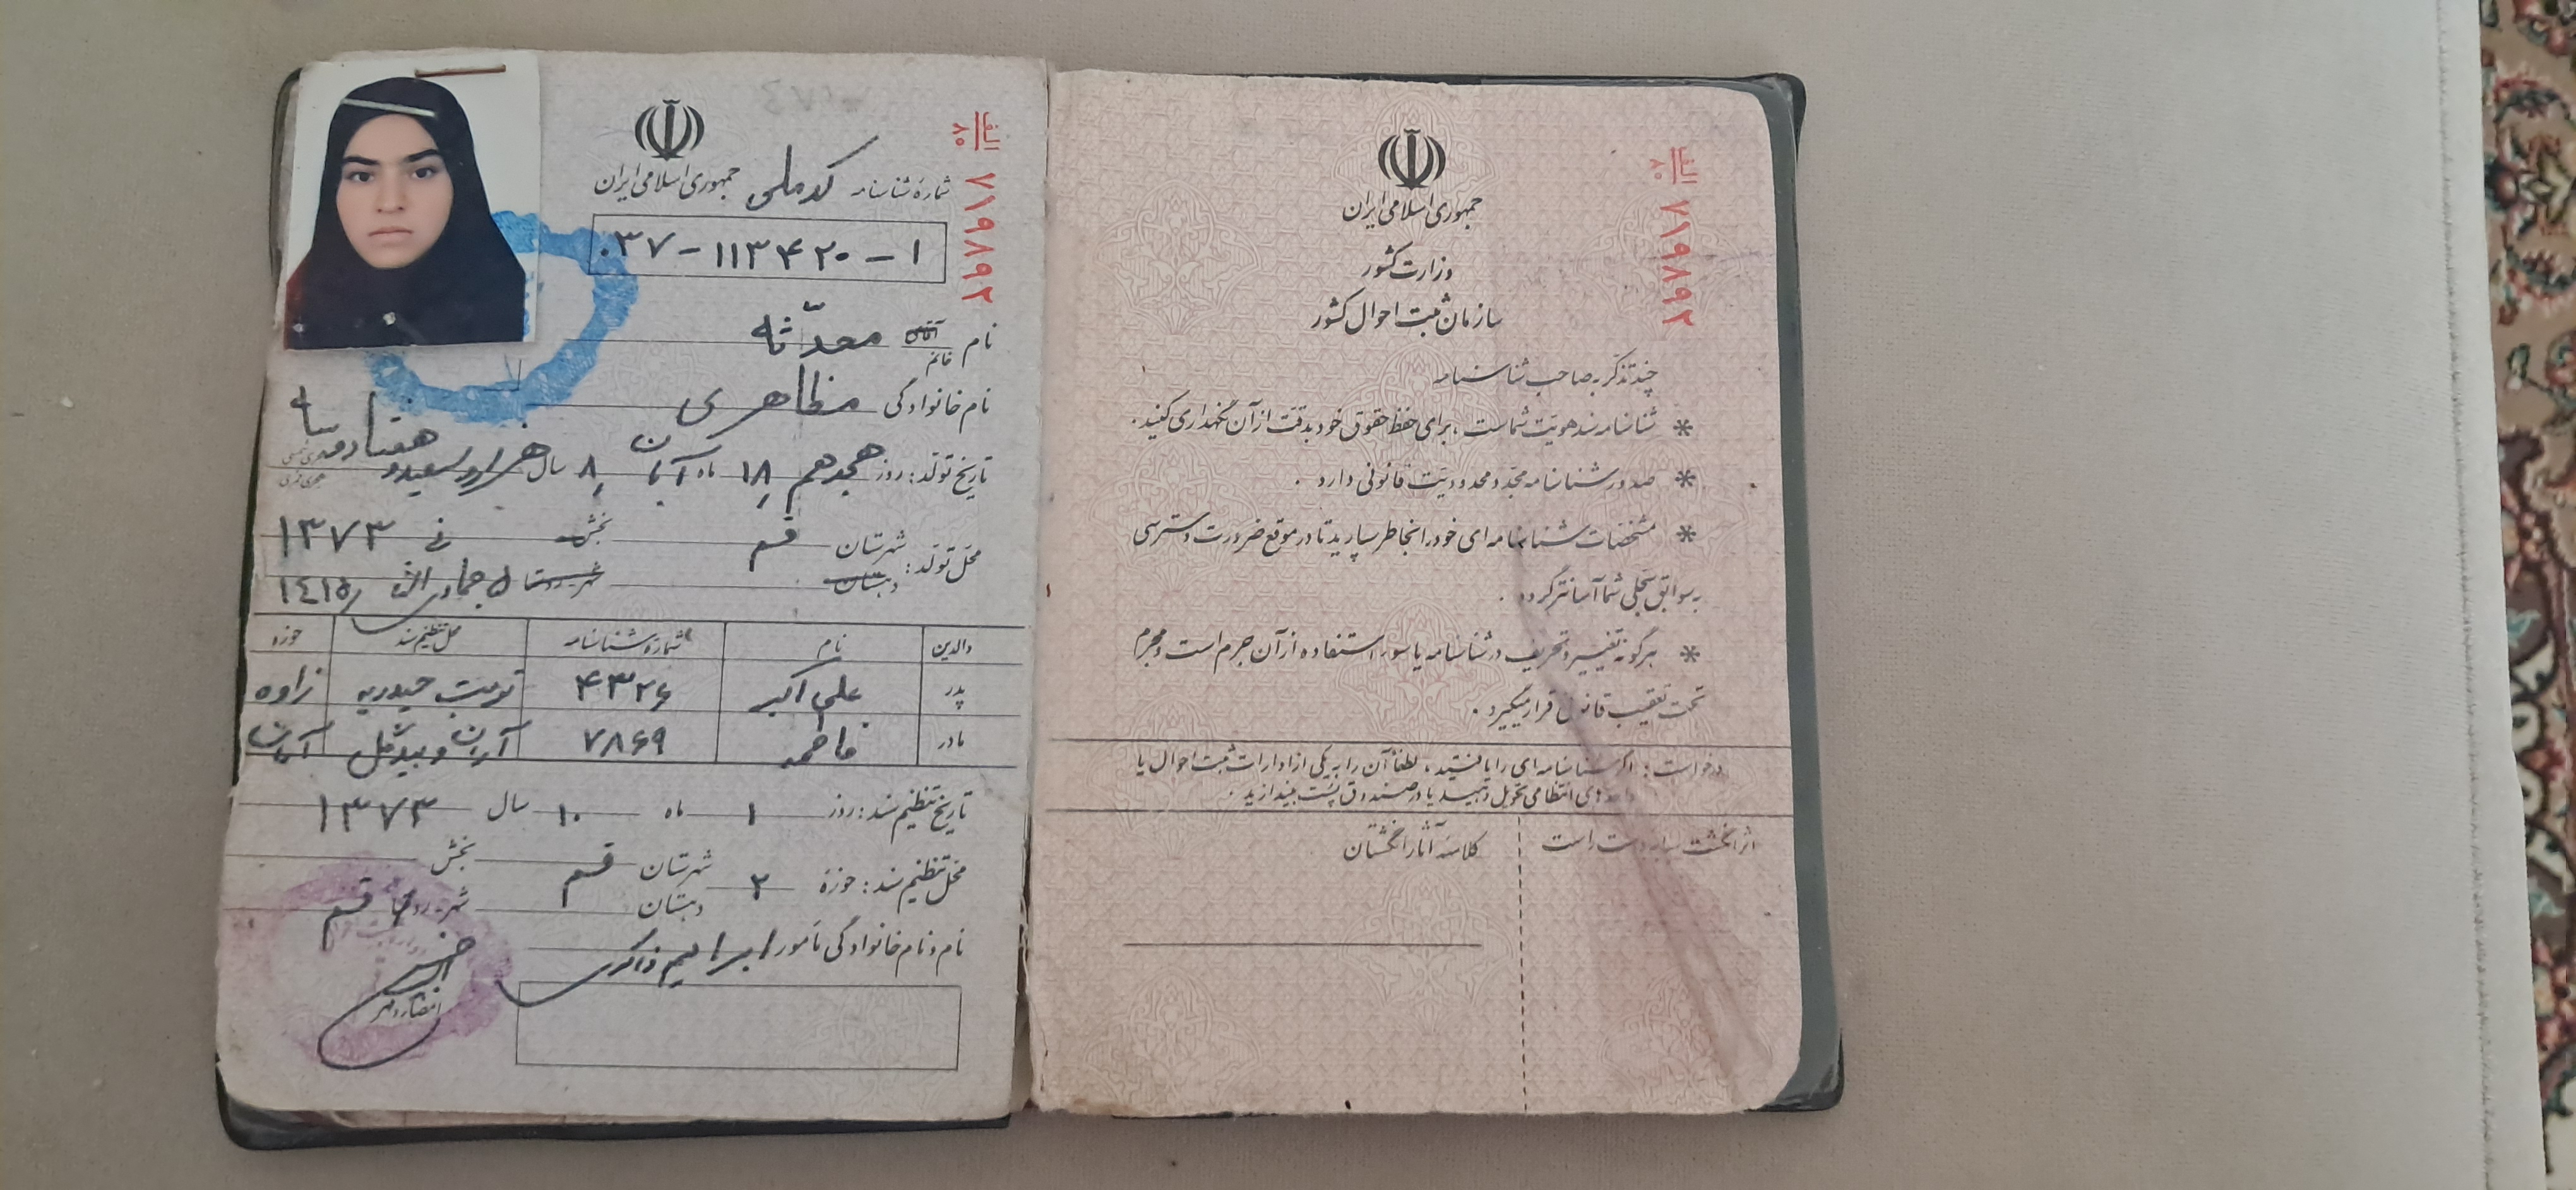 جمهوری اسلامی ایران
شمارهٔ شناسنامه کد ملی
۰۳۷-۱۱۳۴۲۰-۱
الف ۸۰ ۷۱۹۸۹۲
نام آقای خانم محدّثه
نام خانوادگی مظاهری
تاریخ تولّد: روز هجدهم ۱۸ ماه آبان ۸ سال هزار و سیصد و هفتاد و سه
محلّ تولّد: شهرستان قم بخش ۱۳۷۳
دهستان شهر - روستا ۵ جمادی الثانی ۱۴۱۵
والدین نام شمارهٔ شناسنامه محل تنظیم سند حوزه
پدر علی اکبر ۴۳۲۶ تربت حیدریه زاوه
مادر فاطمه ۷۸۶۹ آران و بیدگل آران
تاریخ تنظیم سند: روز ۱ ماه ۱۰ سال ۱۳۷۳
محل تنظیم سند: حوزهٔ ۲ شهرستان قم بخش
دهستان شهر - روستا قم
نام و نام خانوادگی مأمور ابراهیم ذاکری
امضاء و مهر
الف ۸۰ ۷۱۹۸۹۲
جمهوری اسلامی ایران
وزارت کشور
سازمان ثبت احوال کشور
چند تذکّر به صاحب شناسنامه
* شناسنامه سند هویّت شماست، برای حفظ حقوق خود بدقّت از آن نگهداری کنید.
* صدور شناسنامه مجدّد محدودیّت قانونی دارد.
* مشخصات شناسنامه‌ای خود را بخاطر بسپارید تا در موقع ضرورت دسترسی
به سوابق سجلی شما آسانتر گردد.
* هرگونه تغییر و تحریف در شناسنامه یا سوء استفاده از آن جرم است و مجرم
تحت تعقیب قانونی قرار میگیرد.
درخواست: اگر شناسنامه‌ای را یافتید، لطفاً آن را به یکی از ادارات ثبت احوال یا
واحدهای انتظامی تحویل دهید یا در صندوق پست بیندازید.
اثر انگشت سبابه دست راست
کلاسهٔ آثار انگشتان